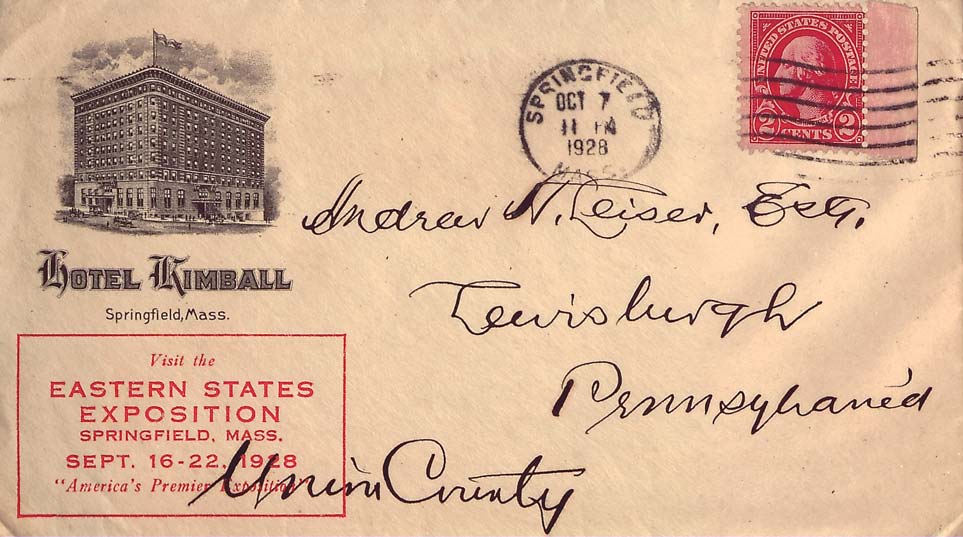 HOTEL KIMBALL
Springfield, Mass.
Visit the
EASTERN STATES
EXPOSITION
SPRINGFIELD, MASS.
SEPT. 16-22, 1928
"America's Premier Exposition"
SPRINGFIELD
OCT 7
11 PM
1928
MASS.
UNITED STATES POSTAGE
2 CENTS 2
Andrew A. Leiser, Esq.
Lewisburgh
Pennsylvania
Union County